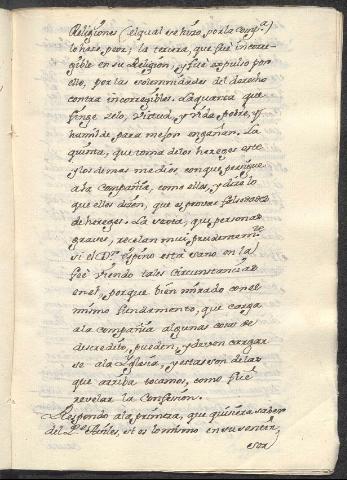 Religiones (el qual se hizo, por la Compª)
lo hace peor; la tercera, que fué incorre-
gible en su Religion, y fué expulso por
ello, por las solemnidades del derecho
contra incorregibles. La quarta que
finge zelo, virtud, y vida pobre, y
humilde, para mejor engañar. La
quinta, que toma de los hereges este
y los demas medios, con que persigue
a la Compañia, como ellos, y dice lo
que ellos dicen, que es provar falso
de hereges. La sexta, que personas
graves, recelan mui prudentemte
si el Dor Espino està sano en la
feè viendo tales circunstancias
en el, porque bien mirado con el
mismo fundamento, que carga
a la compañia algunas cosas de
descredito, pueden, y deven cargar
se a la Yglesia, y estas son de las
que arriba tocamos, como fuè
revelar la Confesion.
Respondo a la primera, que quisiera saber
del Pe Aviles, si es lo mismo en su sentir,
esta